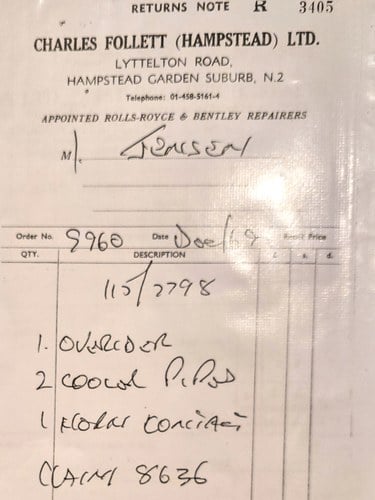 RETURNS NOTE R 3405
CHARLES FOLLETT (HAMPSTEAD) LTD.
LYTTELTON ROAD,
HAMPSTEAD GARDEN SUBURB, N.2
Telephone: 01-458-5161-4
APPOINTED ROLLS-ROYCE & BENTLEY REPAIRERS
M/. JENSEN
Order No. 9960 Date Dec/69 Price
QTY. DESCRIPTION £. s. d.
115/2798
1. OVERIDER
2 COOLER PIPES
1 HORN CONTACT
CLAIM 8636